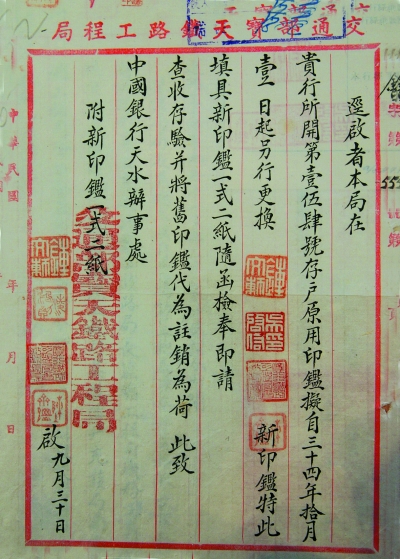 交通部寶天鐵路工程局
逕啟者本局在
貴行所開第壹伍肆號存戶原用印鑑擬自三十四年拾月
壹日起另行更換
新印鑑特此
填具新印鑑一式二紙隨函檢奉即請
查收存驗并將舊印鑑代為註銷為荷 此致
中國銀行天水辦事處
附新印鑑一式二紙
交通部寶天鐵路工程局
啟 九月三十日
中華民國 年 月 日